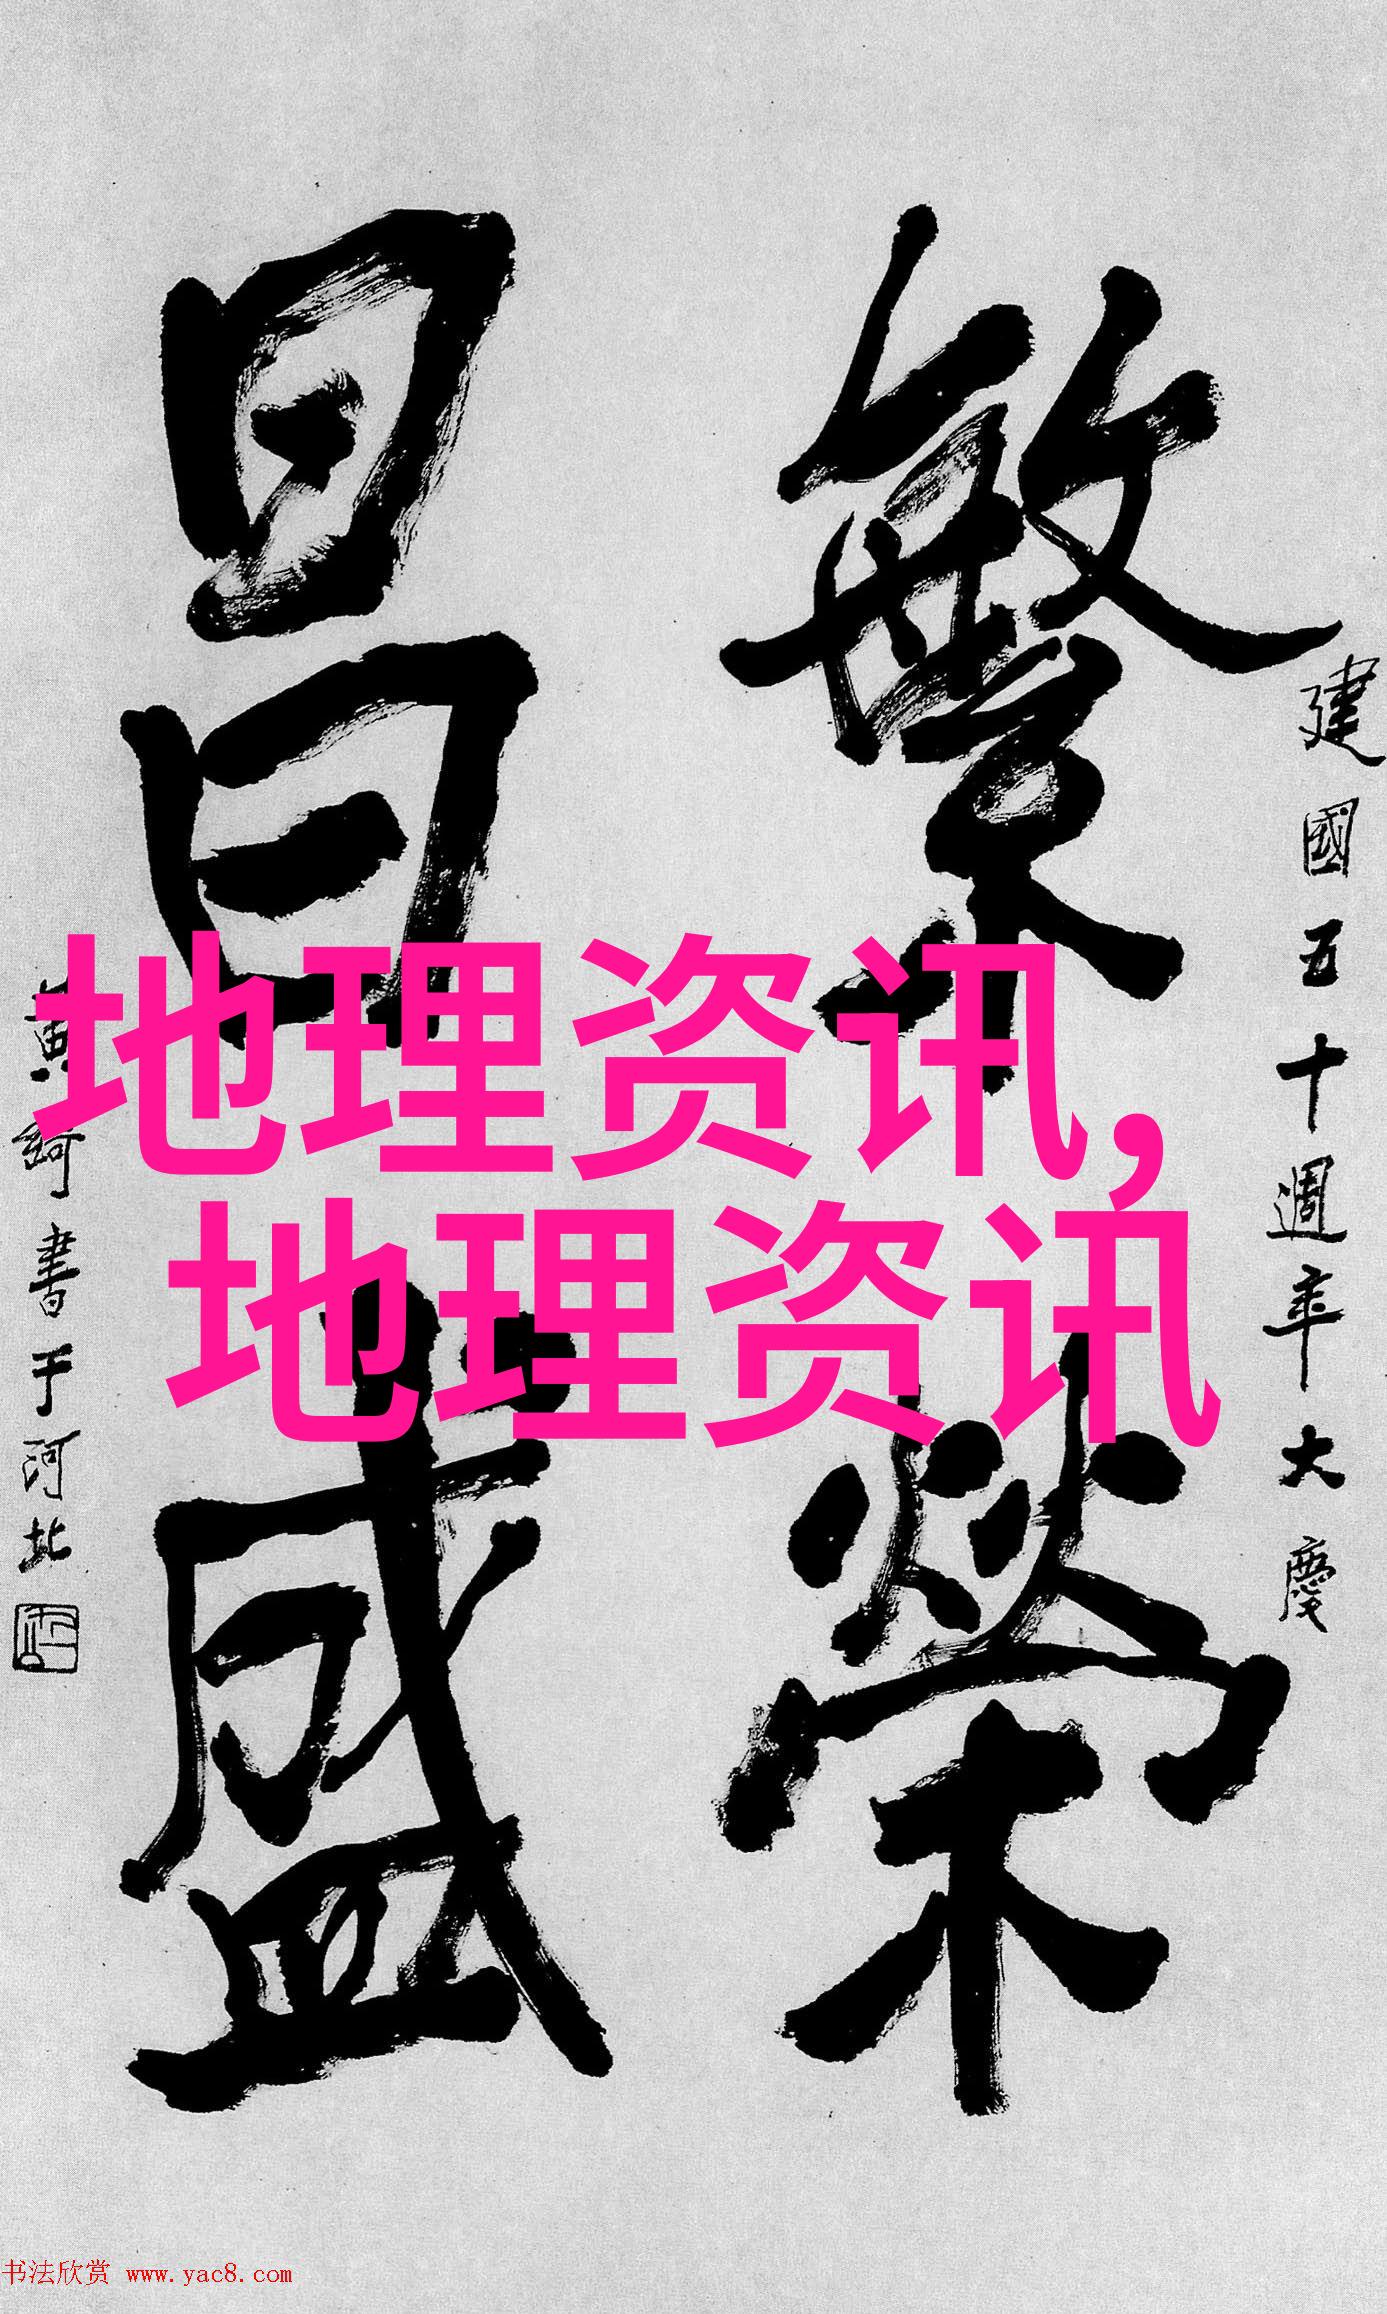 建國五十週年大慶
繁榮
昌盛
黄綺書于河北
地理资讯,
地理资讯
书法欣赏 www.yac8.com